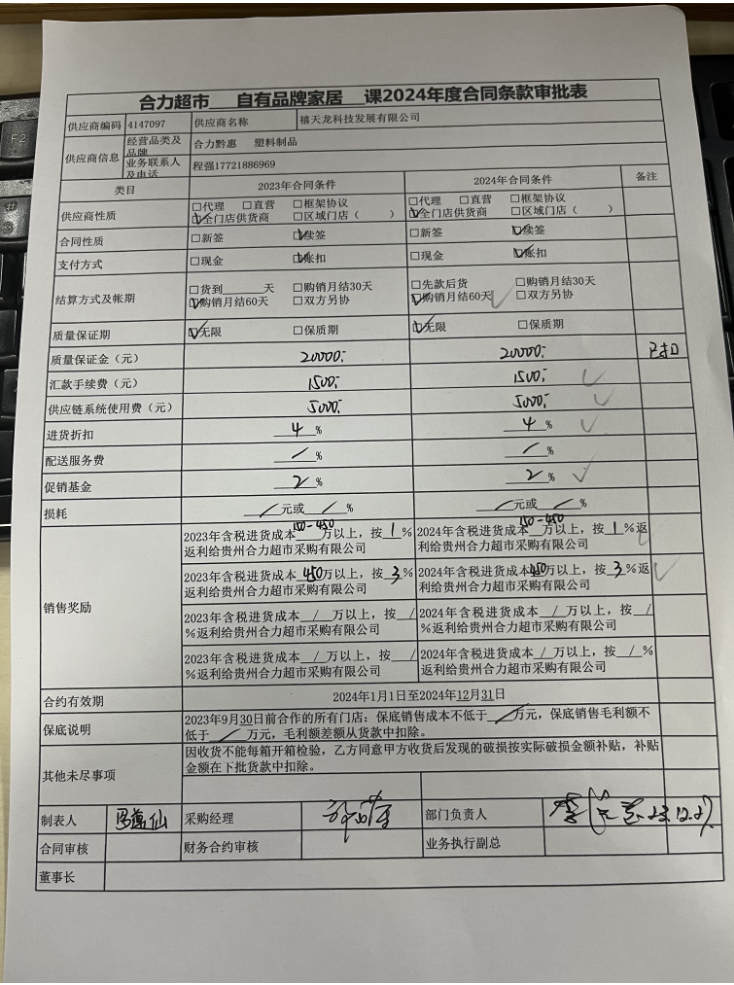 合力超市 自有品牌家居 课2024年度合同条款审批表
供应商编码 4147097 供应商名称 禧天龙科技发展有限公司
供应商信息 经营品类及品牌 合力黔惠 塑料制品
业务联系人及电话 程强17721886969
类目 2023年合同条件 2024年合同条件 备注
供应商性质 □代理 □直营 □框架协议 □代理 □直营 □框架协议
☑全门店供货商 □区域门店（ ） ☑全门店供货商 □区域门店（ ）
合同性质 □新签 ☑续签 □新签 ☑续签
支付方式 □现金 ☑账扣 □现金 ☑账扣
结算方式及帐期 □货到______天 □购销月结30天 □先款后货 □购销月结30天
☑购销月结60天 □双方另协 ☑购销月结60天 □双方另协
质量保证期 ☑无限 □保质期 ☑无限 □保质期
质量保证金（元） 20000.- 20000.- 已扣
汇款手续费（元） 1500.- 1500.-
供应链系统使用费（元） 5000.- 5000.-
进货折扣 4 % 4 %
配送服务费 / % / %
促销基金 2 % 2 %
损耗 / 元或 / % / 元或 / %
销售奖励
2023年含税进货成本150-450万以上，按1%返利给贵州合力超市采购有限公司 2024年含税进货成本150-450万以上，按1%返利给贵州合力超市采购有限公司
2023年含税进货成本450万以上，按3%返利给贵州合力超市采购有限公司 2024年含税进货成本450万以上，按3%返利给贵州合力超市采购有限公司
2023年含税进货成本 / 万以上，按 / %返利给贵州合力超市采购有限公司 2024年含税进货成本 / 万以上，按 / %返利给贵州合力超市采购有限公司
2023年含税进货成本 / 万以上，按 / %返利给贵州合力超市采购有限公司 2024年含税进货成本 / 万以上，按 / %返利给贵州合力超市采购有限公司
合约有效期 2024年1月1日至2024年12月31日
保底说明 2023年9月30日前合作的所有门店：保底销售成本不低于 / 万元，保底销售毛利额不
低于 / 万元，毛利额差额从货款中扣除。
其他未尽事项 因收货不能每箱开箱检验，乙方同意甲方收货后发现的破损按实际破损金额补贴，补贴
金额在下批货款中扣除。
制表人 采购经理 部门负责人
合同审核 财务合约审核 业务执行副总
董事长